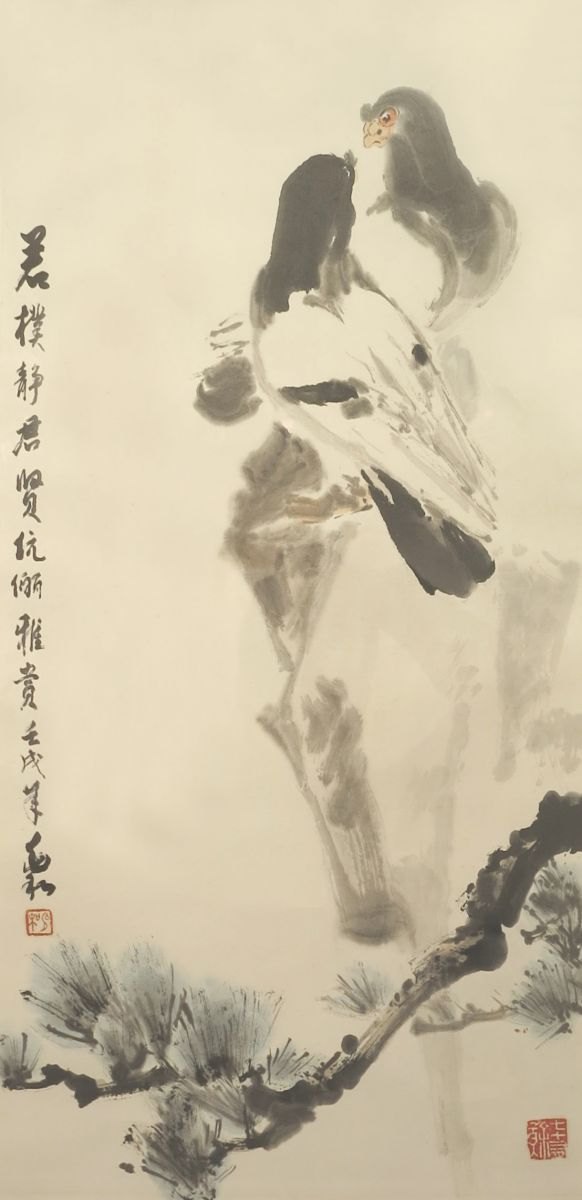 若樸靜君賢伉儷雅賞壬戌年